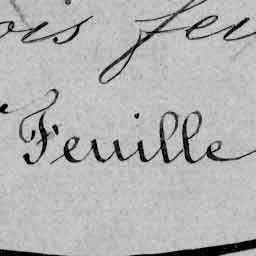 ois feu
Feuille